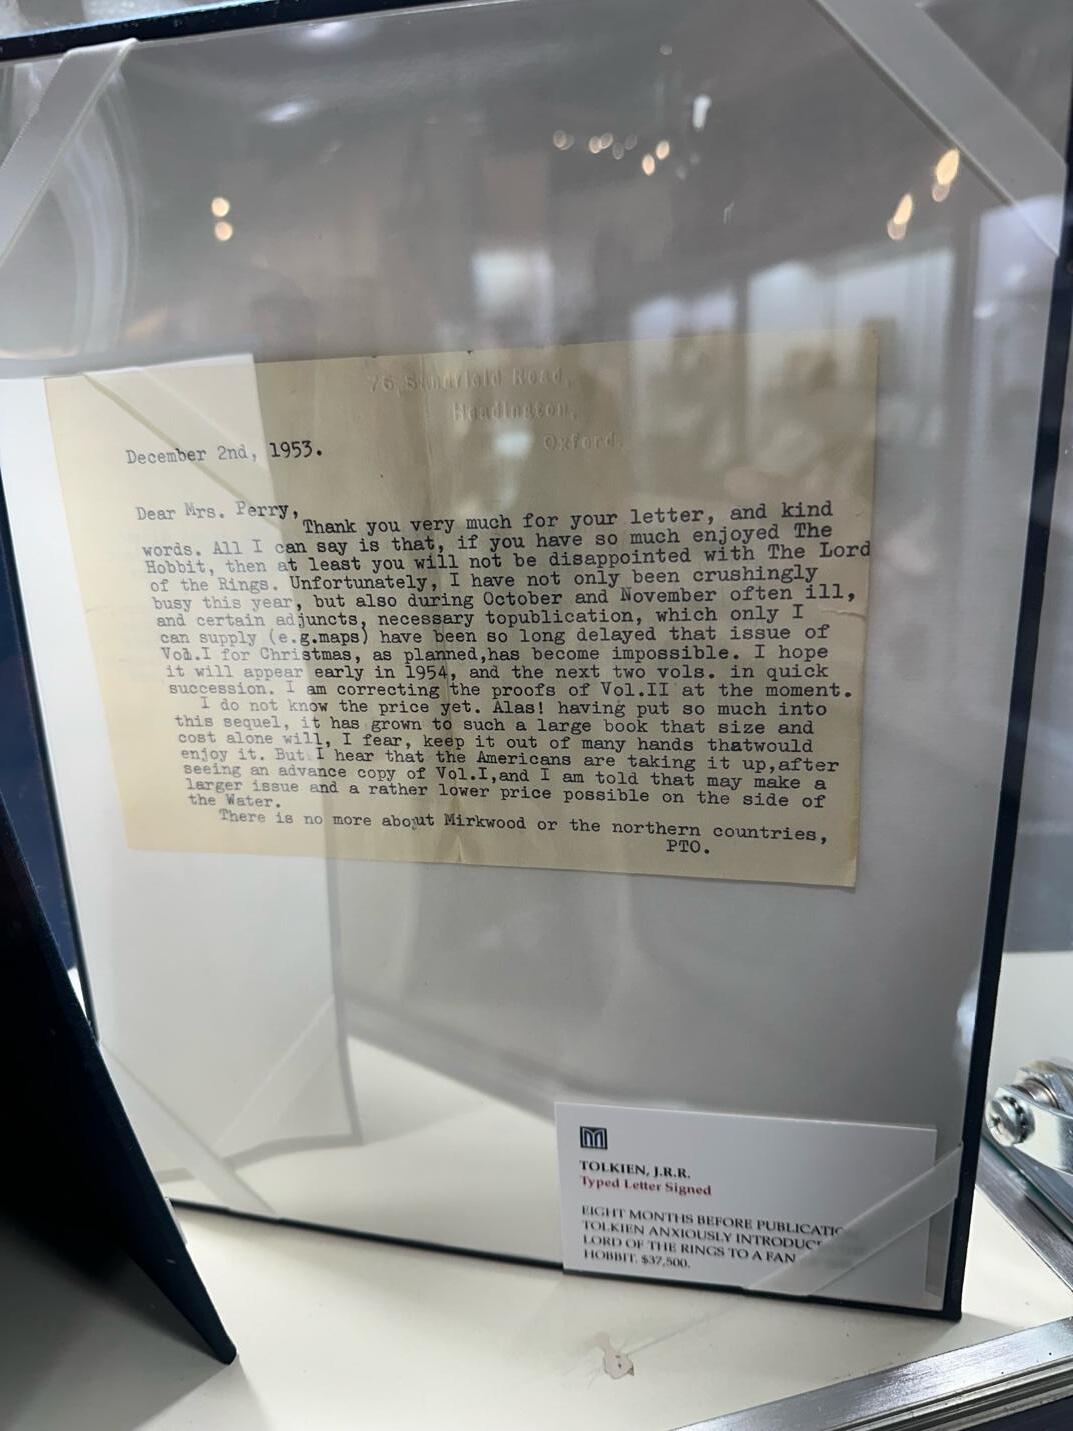 76, Sandfield Road,
Headington,
Oxford.
December 2nd, 1953.
Dear Mrs. Perry,
Thank you very much for your letter, and kind
words. All I can say is that, if you have so much enjoyed The
Hobbit, then at least you will not be disappointed with The Lord
of the Rings. Unfortunately, I have not only been crushingly
busy this year, but also during October and November often ill,
and certain adjuncts, necessary topublication, which only I
can supply (e.g.maps) have been so long delayed that issue of
Vol.I for Christmas, as planned,has become impossible. I hope
it will appear early in 1954, and the next two vols. in quick
succession. I am correcting the proofs of Vol.II at the moment.
I do not know the price yet. Alas! having put so much into
this sequel, it has grown to such a large book that size and
cost alone will, I fear, keep it out of many hands thatwould
enjoy it. But I hear that the Americans are taking it up,after
seeing an advance copy of Vol.I,and I am told that may make a
larger issue and a rather lower price possible on the side of
the Water.
There is no more about Mirkwood or the northern countries,
PTO.
TOLKIEN, J.R.R.
Typed Letter Signed
EIGHT MONTHS BEFORE PUBLICATIO
TOLKIEN ANXIOUSLY INTRODUC
LORD OF THE RINGS TO A FAN
HOBBIT. $37,500.